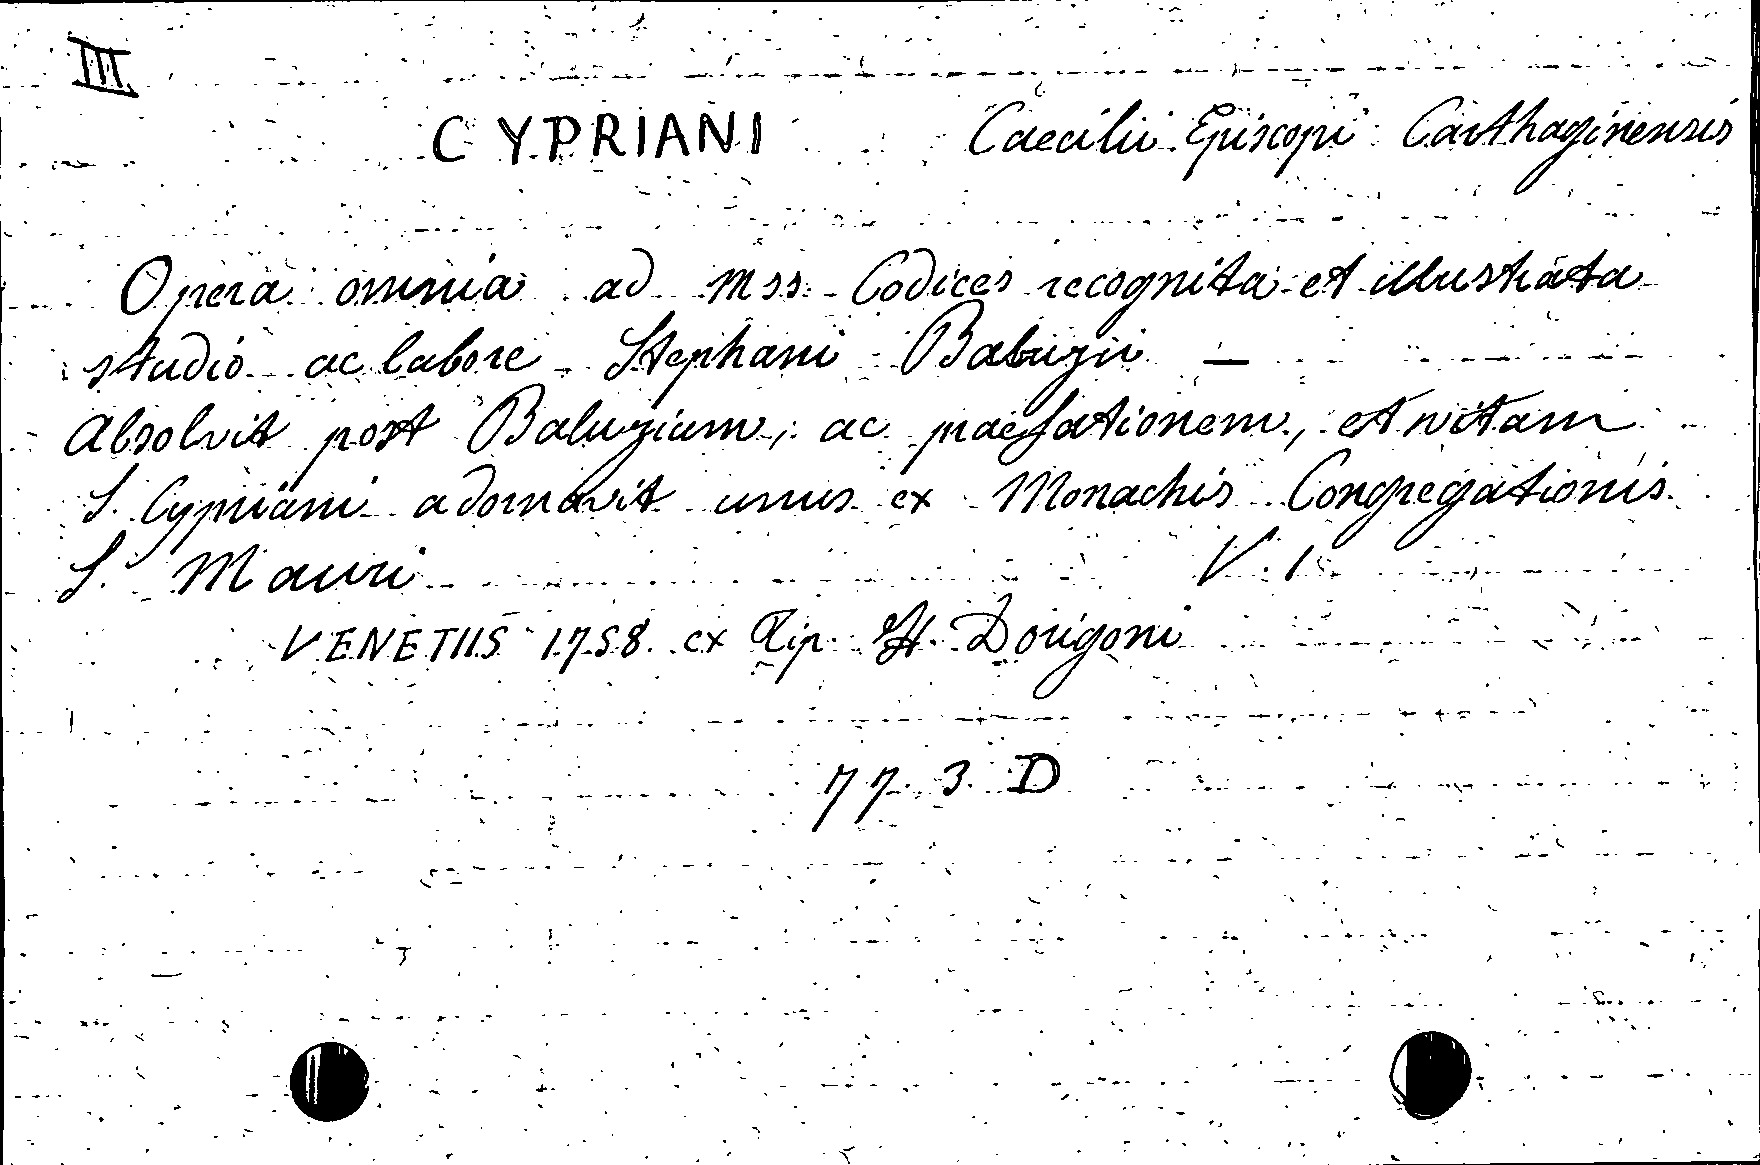 III
CYPRIANI Caecilii Episcopi Carthaginensis
Opera omnia ad Mss. Codices recognita et illustrata
studio ac labore Stephani Baluzii —
Absolvit post Baluzium, ac praefationem, et vitam
S. Cypriani adornavit unus ex Monachis Congregationis
S. Mauri V. 1
VENETIIS 1758 ex Tip. H. Dorigoni
77. 3. D